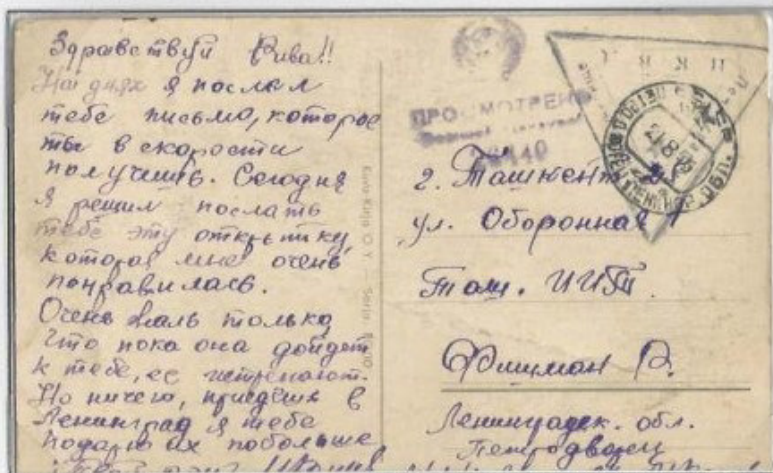 Здравствуй Рива!!
На днях я послал
тебе письмо, которое
ты в скорости
получишь. Сегодня
я решил послать
тебе эту открытку,
которая мне очень
понравилась.
Очень жаль только
что пока она дойдет
к тебе, ее истрепают.
Но ничего, приедешь в
Ленинград я тебе
подарю их побольше
ПРОСМОТРЕНО
Военной Цензурой
г. Ташкент
ул. Оборонная 1
Таш. ИИТ.
Фишман Р.
Ленинградск. обл.
Петродворец
Kuva Kirja O. Y. — Serie